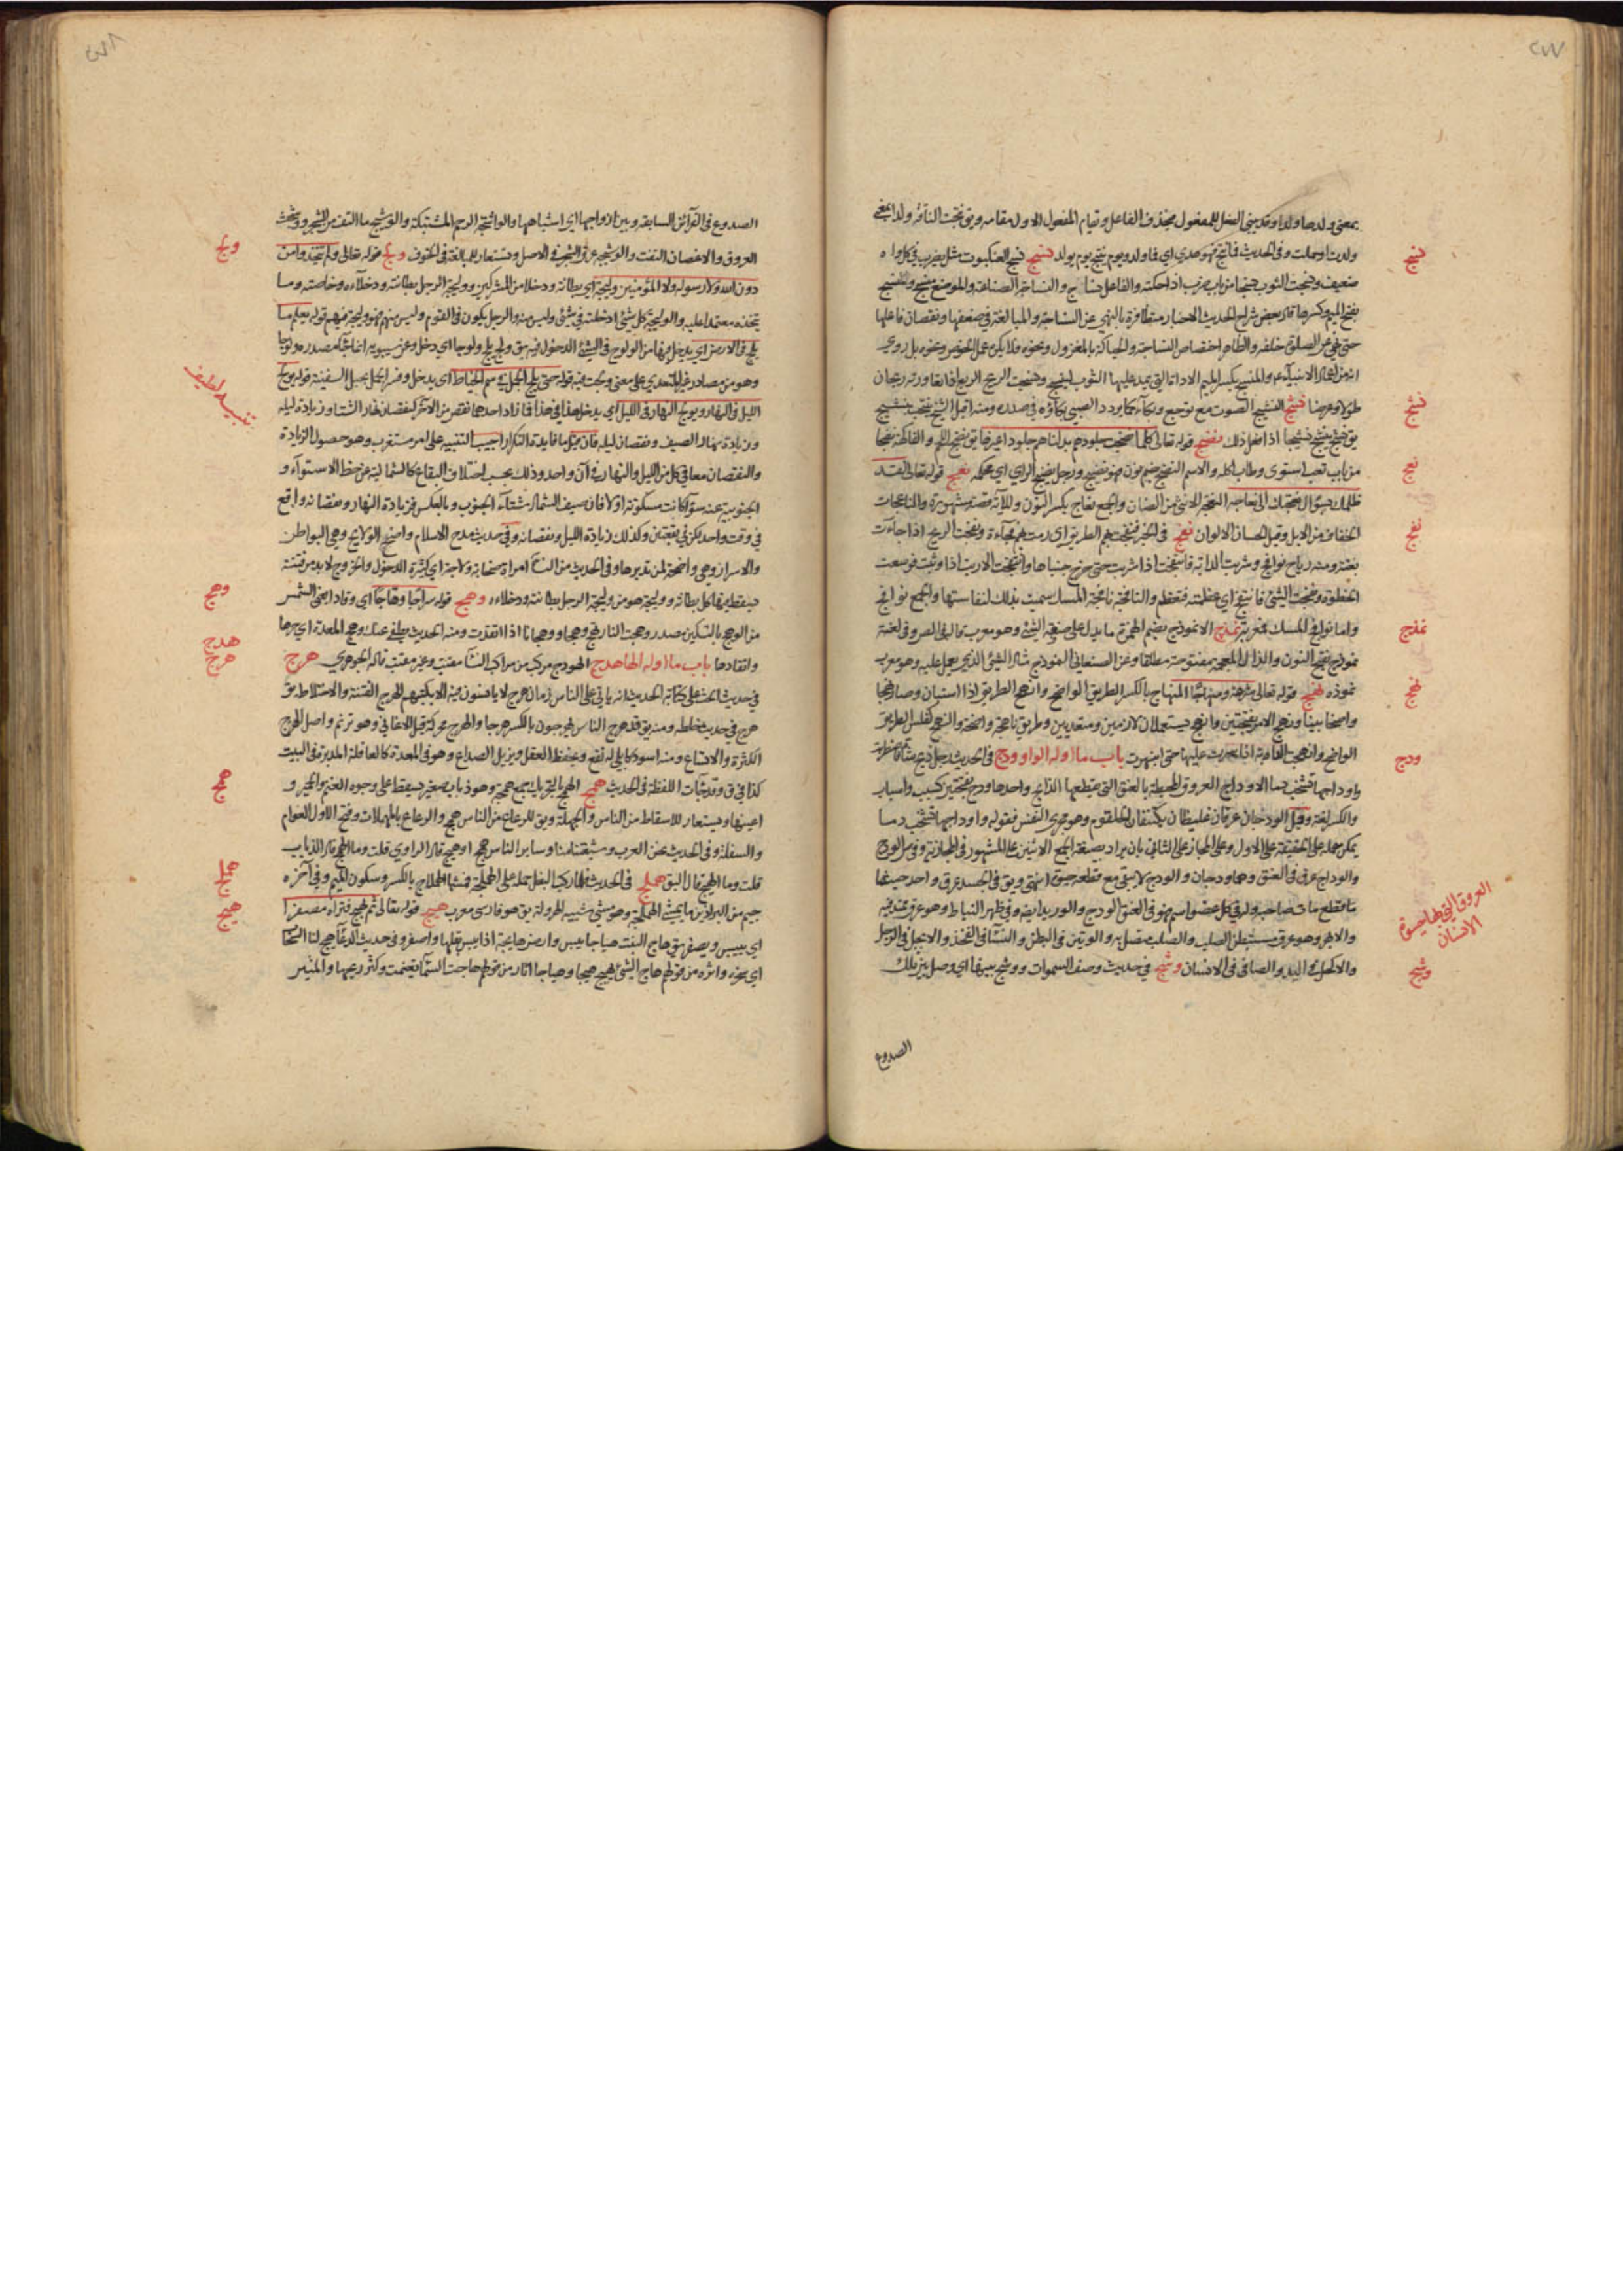 بمعنى ولدها ولدا وقد يبنى الفعل للمفعول فيحذف الفاعل ويقام المفعول الاول مقامه ويق نتجت الناقة ولدا بمعنى
ولدت او حملت وفي الحديث يوم ينتج يوم يولد نسج نسج العنكبوت مثل يضرب في كل واه
ضعيف ونسجت الثوب نسجا من باب ضرب اذا حكته والفاعل نساج والنساجة الصناعة والموضع منسج
بفتح الميم وكسرها قال بعض شراح الحديث الاخبار متظافرة بالنهي عن النساجة والمبالغة في ضعفها ونقصان فاعلها
حتى نهي عن الصلوة خلفه والظاهر اختصاص النساجة والحياكة بالمغزول ونحوه فلا يكره عمل الخوص ونحوه بل روي
انه من اعمال الانبياء والمنسج بكسر الميم الاداة التي يمد عليها الثوب لينسج ونسجت الريح الربع اذا تعاورته ريحان
طولا وعرضا نشج النشيج الصوت مع توجع وبكاء كما يردد الصبي بكاؤه في صدره ومنه
يق نشج ينشج نشيجا اذا فعل ذلك نضج قوله تعالى كلما نضجت جلودهم بدلناهم جلودا غيرها يق نضج اللحم والفاكهة نضجا
من باب تعب استوى وطاب اكله والاسم النضج بضم نون فهو نضيج ورجل نضيج الراي اي محكمه نعج قوله تعالى لقد
ظلمك بسؤال نعجتك الى نعاجه النعجة الانثى من الضان والجمع نعاج بكسر النون وللآية قصة مشهورة والناعجات
الخفاف من الابل وقيل الحسان الالوان نفج في الخبر فنفجت بهم الطريق اي رمت بهم فجاءة ونفجت الريح اذا جاءت
بغتة ومنه رياح نوافج
الخطوة ونفجت الشيء فانتفج اي عظمته فتعظم والنافجة نافجة المسك سميت بذلك لنفاستها والجمع نوافج
واما نوافج المسك فمعربة نمذج الانموذج بضم الهمزة ما يدل على صفة الشيء وهو معرب وفي لغة
نموذج بفتح النون والذال المعجمة مفتوحة مطلقا وعن الصنعاني النموذج مثال الشيء الذي يعمل عليه وهو معرب
نموذه نهج قوله تعالى شرعة ومنهاجا المنهاج بالكسر الطريق الواضح وانهج الطريق اذا استبان وصار نهجا
واضحا بينا ونهج الامر بفتحتين وانهج يستعملان لازمين ومتعديين وطريق ناهجة واضحة والنهج كفلس الطريق
الواضح وانهجت الدابة اذا سرت عليها حتى انبهرت باب ما اوله الواو ودج في الحديث رجل ذبح شاة
واوداجها تشخب دما الاوداج العروق المحيطة بالعنق التي يقطعها الذابح واحدها ودج بفتحتين كسبب واسباب
والكسر لغة وقيل الودجان عرقان غليظان يكتنفان الحلقوم وهو مجرى النفس فقوله واوداجها تشخب دما
يمكن حمله على الحقيقة على الاول وعلى المجاز على الثاني بان يراد بصيغة الجمع الاثنين
والوداج عرق في العنق وهما ودجان والودج لا تبقى مع قطعه حيوة انتهى ويق في الجسد عرق واحد حيثما
قطع مات صاحبه وله في كل عضو اسم فهو في العنق الودج والوريد ايضا وفي الظهر النياط وهو عرق ممتد فيه
والابهر وهو عرق مستبطن الصلب والصلب متصل به والوتين في البطن والنسا في الفخذ والابجل في الرجل
والاكحل في اليد والصافن في الانسان وشج في حديث وصف السموات ووشج بينها اي وصل
الصدوع
نسج
نشج
نعج
نفج
نمذج
نهج
ودج
العروق التي بها حيوة
الانسان
وشج
الصدوع في القرائن السابقة وبين ازواجها اي اشباهها والواشجة الرحم المشتبكة والوشيج ما التف من الشجر ووشجت
العروق والاغصان التفت والوشيجة عرق الشجر في الاصل وتستعار للمبالغة في الخوف ولج قوله تعالى ولم يتخذوا من
دون الله ولا رسوله ولا المؤمنين وليجة اي بطانة ودخلا من المشركين ووليجة الرجل بطانته ودخلاءه وخاصته وما
يتخذه معتمدا عليه والوليجة كل شيء ادخلته في شيء وليس منه والرجل يكون في القوم وليس منهم فهو وليجة فيهم قوله يعلم ما
يلج في الارض اي يدخل فيها من الولوج في الشيء الدخول فيه يق ولج يلج ولوجا اي دخل وعن سيبويه انما جاء مصدره ولوجا
وهو من مصادر غير المتعدي على معنى ولجت فيه قوله حتى يلج الجمل في سم الخياط اي يدخل وفسر الجمل بحبل السفينة قوله يولج
الليل في النهار ويولج النهار في الليل اي يدخل هذا في هذا فما زاد احدهما نقص من الآخر كنقصان نهار الشتاء وزيادة ليله
وزيادة نهار الصيف ونقصان ليله فان قيل ما فايدة التكرار اجيب التنبيه على امر مستغرب وهو حصول الزيادة
والنقصان معا في كل من الليل والنهار في آن واحد وذلك بحسب اختلاف البقاع كالشمالية عن خط الاستواء و
الجنوبية عنه سواء كانت مسكونة او لا فان صيف الشمالية شتاء الجنوب وبالعكس فزيادة النهار ونقصانه واقع
في وقت واحد لكن في بقعتين وكذلك زيادة الليل ونقصانه وفي حديث مدح الاسلام واضح الولايج وهي البواطن
والاسرار وهي واضحة لمن تدبرها وفي الحديث من النساء امراة صخابة ولاجة اي كثيرة الدخول والخروج لا بد من فتنة
يسقط فيها كل بطانة ووليجة هو من وليجة الرجل بطانته ودخلاءه وهج قوله سراجا وهاجا اي وقادا يعني الشمس
من الوهج بالتسكين مصدر وهجت النار تهج وهجا ووهجانا اذا اتقدت ومنه الحديث يطفي عنك وهج المعدة اي حرها
واتقادها باب ما اوله الهاء هدج الهودج مركب من مراكب النساء مقبب وغير مقبب قاله الجوهري هرج
في حديث الحث على كتابة الحديث انه ياتي على الناس زمان هرج لا يانسون فيه الا بكتبهم الهرج الفتنة والاختلاط يق
هرج في حديث خلطه ومنه يق قد هرج الناس يهرجون بالكسر هرجا والهرج محركة قيل الاغاني وهو ترنم واصل الهرج
الكثرة والاتساع
كذا في ق همج في الحديث الهمج بالتحريك جمع همجة وهو ذباب صغير يسقط على وجوه الغنم والحمير و
اعينها ويستعار للاسقاط من الناس والجهلة ويق للرعاع من الناس همج والرعاع بالمهملات وفتح الاول العوام
والسفلة وفي الحديث نحن العرب وشيعتنا منا وساير الناس همج او هبج قال الراوي قلت وما الهمج قال الذباب
قلت وما الهبج قال البق هملج في الحديث
جيم من البراذين ما يمشي الهملجة وهو مشي شبيه الهرولة يق هو فارسي معرب هيج قوله تعالى ثم يهيج فتراه مصفرا
اي ييبس ويصفر يق هاج النبت هياجا يبس وارض هايجة اذا يبس بقلها واصفر وفي حديث الدعاء هج لنا السحاب
اي سخره واثره من قولهم هاج الشيء يهيج هيجا وهياجا اثار من قولهم هاجت السماء تغيمت وكثر ريحها والمثير
ولج
تنبيه لطيف
وهج
هدج
هرج
همج
هملج
هيج